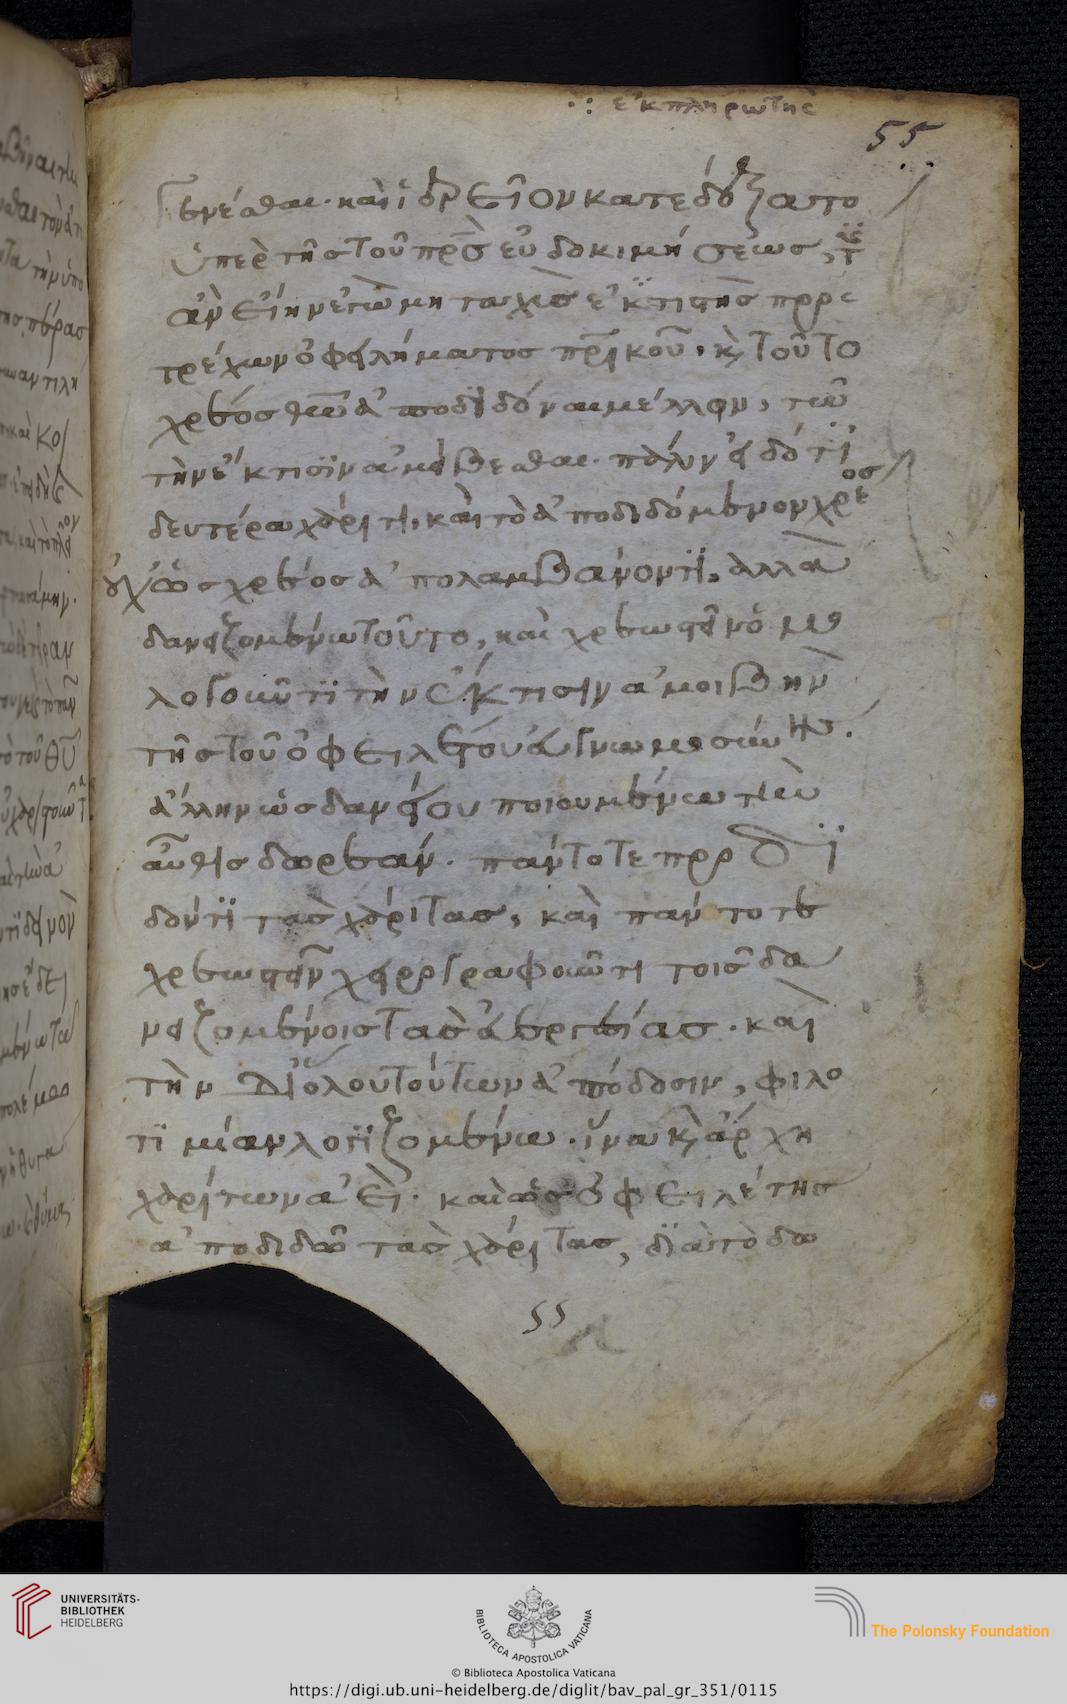 ·: ἐκπληρωτης
55
γενέσθαι· καὶ ἱδρεῖον κατεδέξατο
ὑπὲρ τῆς τοῦ πρς εὐδοκιμήσεως,
ἂν εἴην ἐγὼ μὴ ταχὺς ἐκτιστὴς προσ
τρέχων ὀφλήματος πρικοῦ, κ, τοῦτο
χρέος θεῶ ἀποδιδόναι μέλλων, τῶ
τὴν ἔκτισιν ἀμείβεσθαι πάλιν εἰδότι
δευτέρα χάριτι, καὶ τὸ ἀποδιδόμενον χρέος
οὐχ ὡς χρέος ἀπολαμβάνοντι, ἀλλὰ
δανειζομένω τοῦτο, καὶ χρεωστεῖν ὁμο
λογοῦντι τὴν ἔκτισιν ἀμοιβὴν
τῆς τοῦ ὀφειλέτου εὐγνωμοσύνης.
ἄλλην ὡς δανείου ποιουμένω τὴν
αὖθις δωρεάν· πάντοτε προδι
δόντι τὰς χάριτας, καὶ πάντοτε
χρεωστεῖν χειρογραφοῦντι τοῖς δα
νειζομένοις τὰς εὐεργεσίας· καὶ
τὴν διόλου τούτων ἀπόδοσιν, φιλο
τιμίαν λογιζομένω· ἵνα κ, ἄρχη
χαρίτων ἀεὶ· καὶ ὡς ὀφειλέτης
ἀποδιδῶ τὰς χάριτας, διὰ τὸ δω
55
UNIVERSITÄTS-
BIBLIOTHEK
HEIDELBERG
BIBLIOTECA APOSTOLICA VATICANA
The Polonsky Foundation
© Biblioteca Apostolica Vaticana
https://digi.ub.uni-heidelberg.de/diglit/bav_pal_gr_351/0115